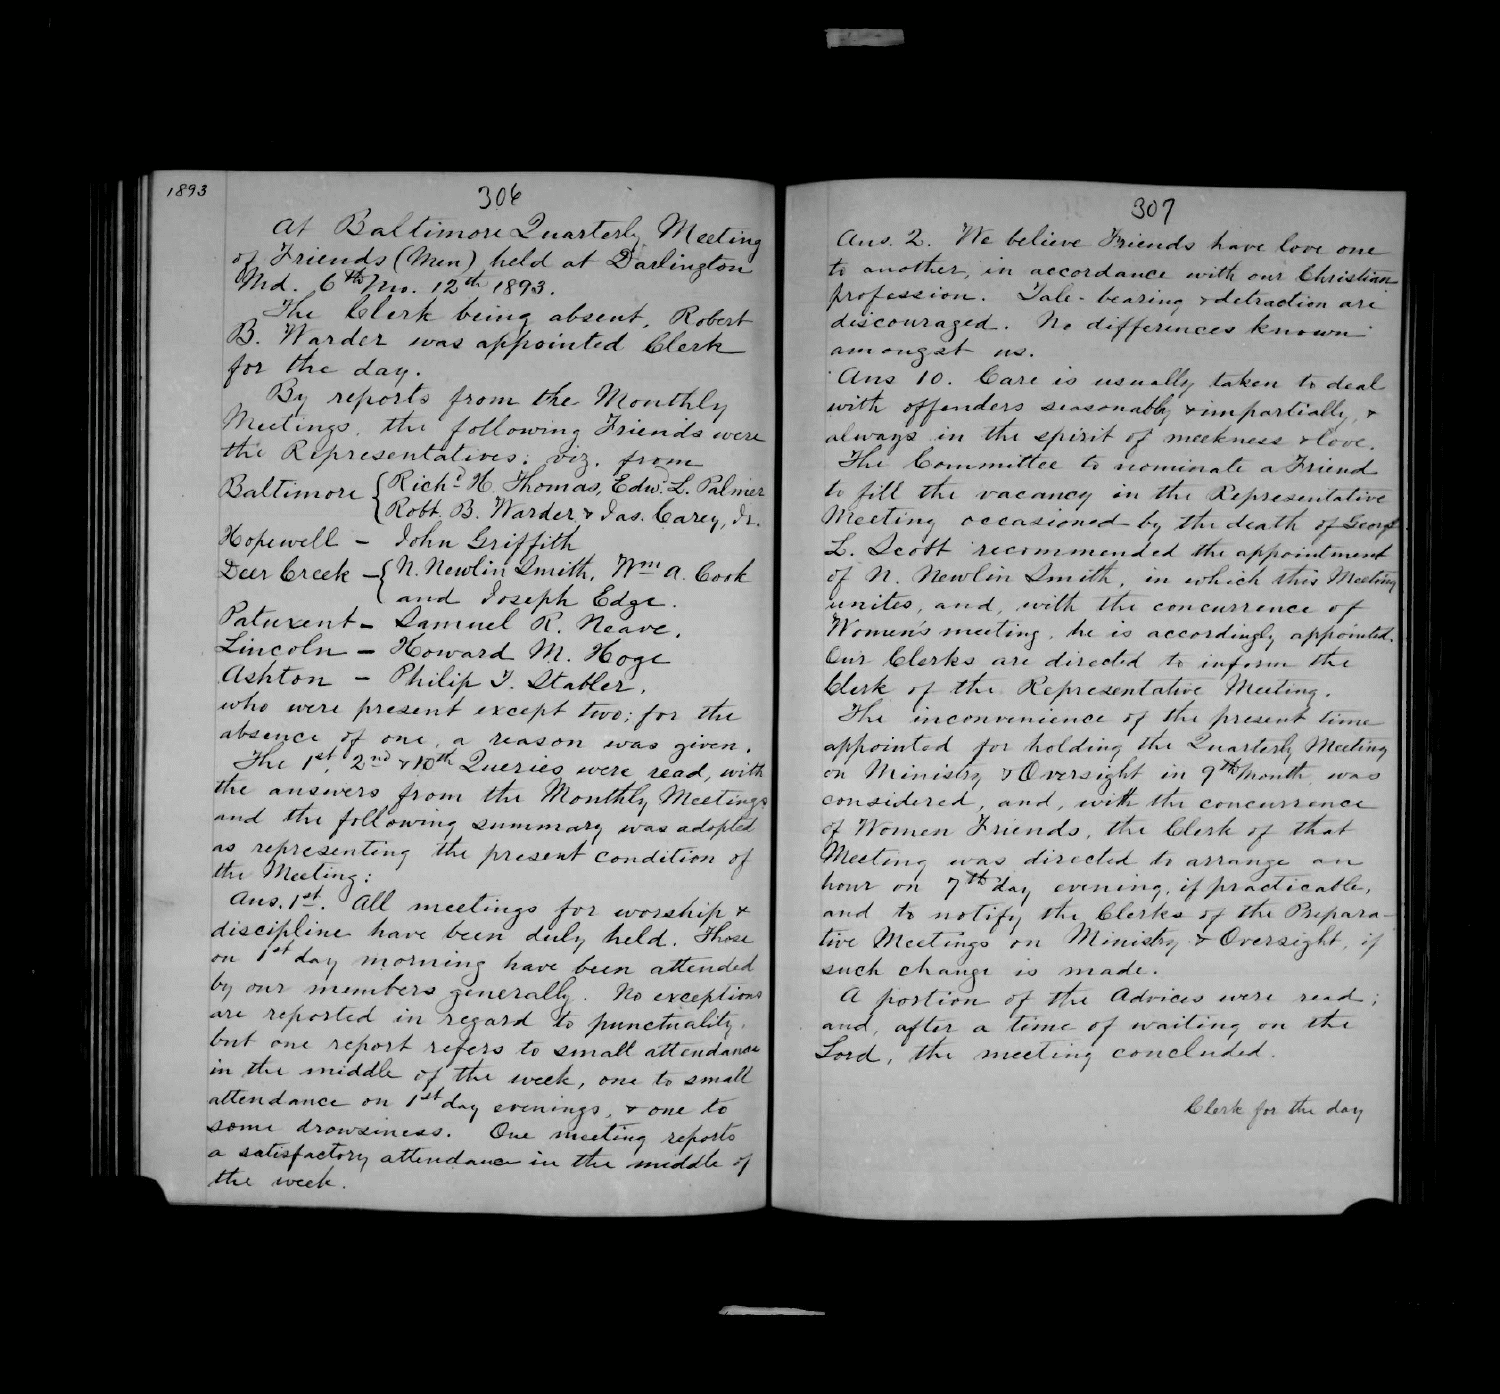 1893
306
At Baltimore Quarterly Meeting
of Friends (Men) held at Darlington
Md. 6th Mo. 12th 1893.
The Clerk being absent, Robert
B. Warder was appointed Clerk
for the day.
By reports from the Monthly
Meetings, the following Friends were
the Representatives: viz. from
Baltimore { Richd H. Thomas, Edw. L. Palmer
Robt. B. Warder, & Jas. Carey, Jr.
Hopewell - John Griffith
Deer Creek - { N. Newlin Smith, Wm A. Cook
and Joseph Edge.
Patuxent - Samuel R. Neave.
Lincoln - Howard M. Hoge
Ashton - Philip T. Stabler.
who were present except two; for the
absence of one, a reason was given.
The 1st, 2nd & 10th Queries were read, with
the answers from the Monthly Meetings
and the following summary was adopted
as representing the present condition of
the Meeting:
Ans. 1st. All meetings for worship &
discipline have been duly held. Those
on 1st day morning have been attended
by our members generally. No exceptions
are reported in regard to punctuality,
but one report refers to small attendance
in the middle of the week, one to small
attendance on 1st day evenings, & one to
some drowsiness. One meeting reports
a satisfactory attendance in the middle of
the week.
307
Ans. 2. We believe Friends have love one
to another, in accordance with our Christian
profession. Tale-bearing & detraction are
discouraged. No differences known
amongst us.
Ans 10. Care is usually taken to deal
with offenders seasonably & impartially, &
always in the spirit of meekness & love.
The Committee to nominate a Friend
to fill the vacancy in the Representative
Meeting occasioned by the death of George
L. Scott recommended the appointment
of N. Newlin Smith, in which this Meeting
unites, and, with the concurrence of
Women's meeting, he is accordingly appointed.
Our Clerks are directed to inform the
Clerk of the Representative Meeting.
The inconvenience of the present time
appointed for holding the Quarterly Meeting
on Ministry & Oversight in 9th month was
considered, and, with the concurrence
of Women Friends, the Clerk of that
Meeting was directed to arrange an
hour on 7th day evening, if practicable,
and to notify the Clerks of the Prepara-
tive Meetings on Ministry & Oversight, if
such change is made.
A portion of the Advices were read;
and, after a time of waiting on the
Lord, the meeting concluded.
Clerk for the day